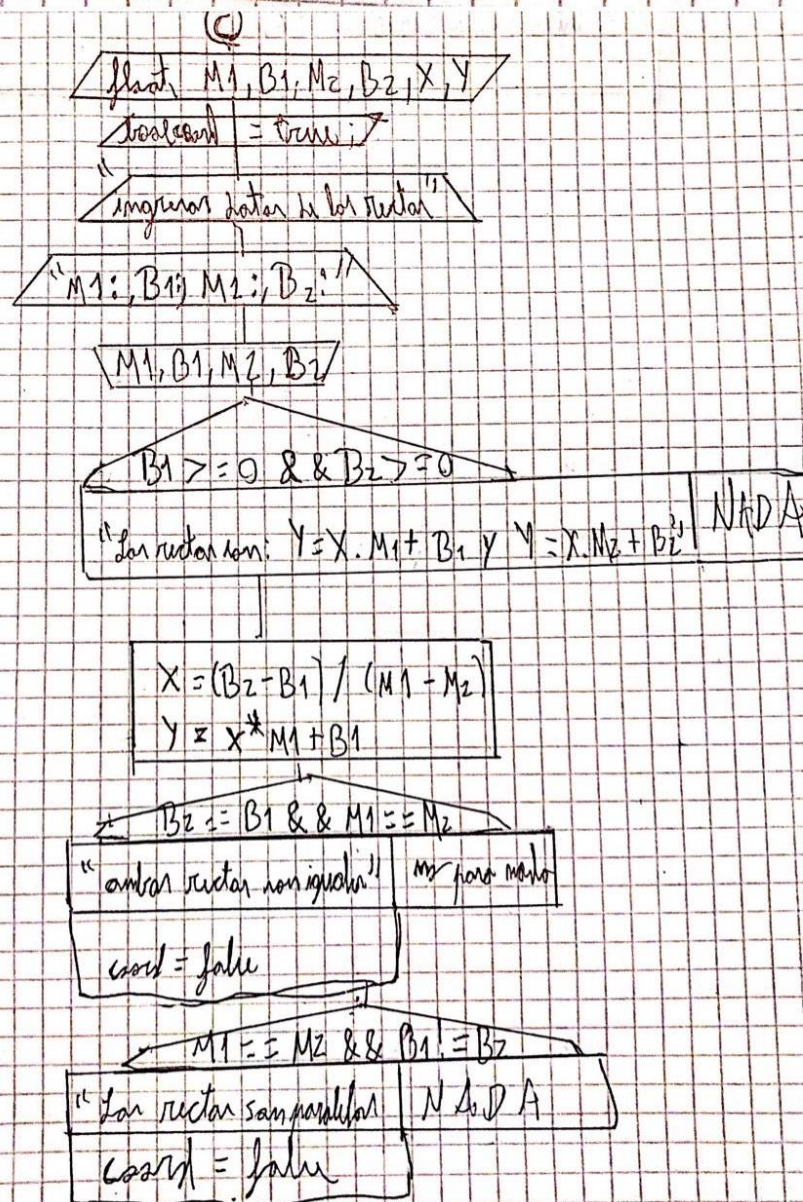 C
float M1, B1, M2, B2, X, Y
bool coord = true;
"ingresar datos de las rectas"
"M1:, B1:, M2:, B2:"
M1, B1, M2, B2
B1 >= 0 && B2 >= 0
"Las rectas son: Y=X.M1+ B1 y Y=X.M2+B2" NADA
X = (B2-B1) / (M1 - M2)
Y = X*M1+B1
B2 == B1 && M1 == M2
"ambas rectas son iguales" no pasa nada
coord = false
M1 == M2 && B1 != B2
"Las rectas son paralelas NADA
coord = false